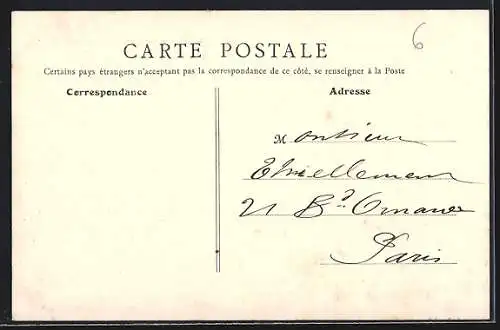 6
CARTE POSTALE
Certains pays étrangers n'acceptant pas la correspondance de ce côté, se renseigner à la Poste
Correspondance
Adresse
Monsieur
Thiellement
21 Bd Ornano
Paris